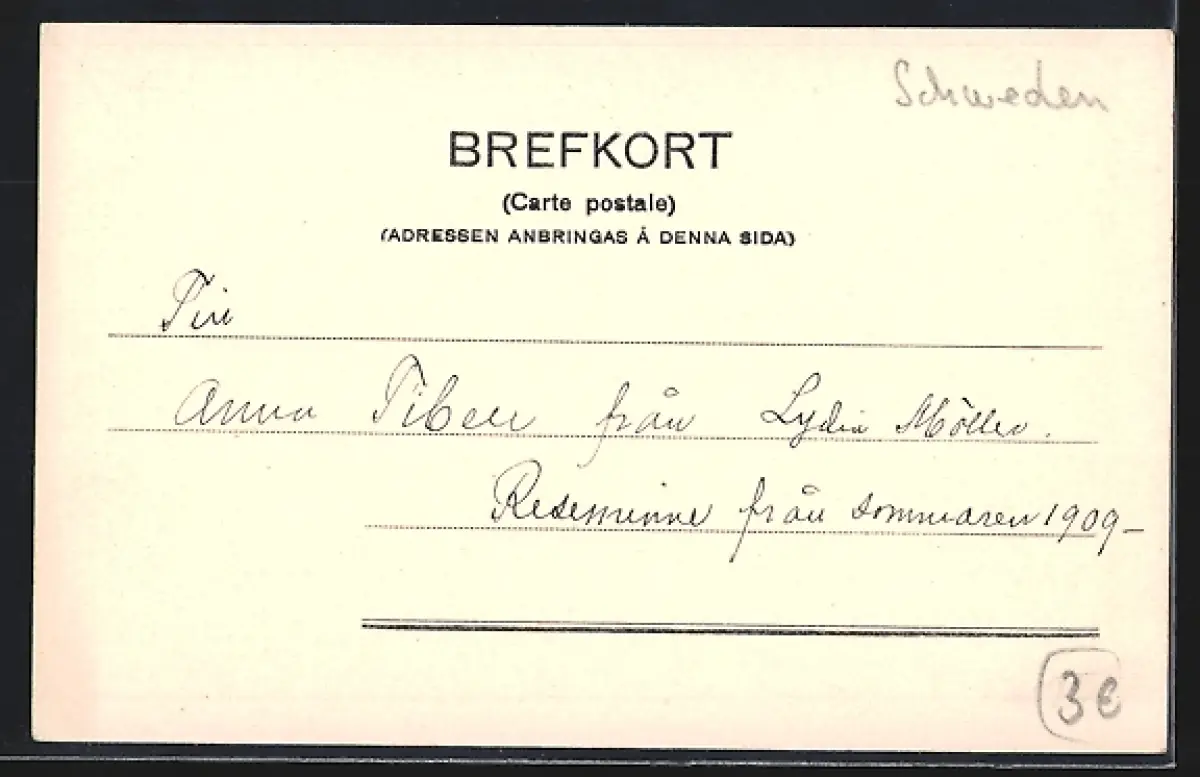 Schweden
BREFKORT
(Carte postale)
(ADRESSEN ANBRINGAS Å DENNA SIDA)
Till
Anna Tibell från Lydia Möller.
Reseminne från sommaren 1909–
3 €